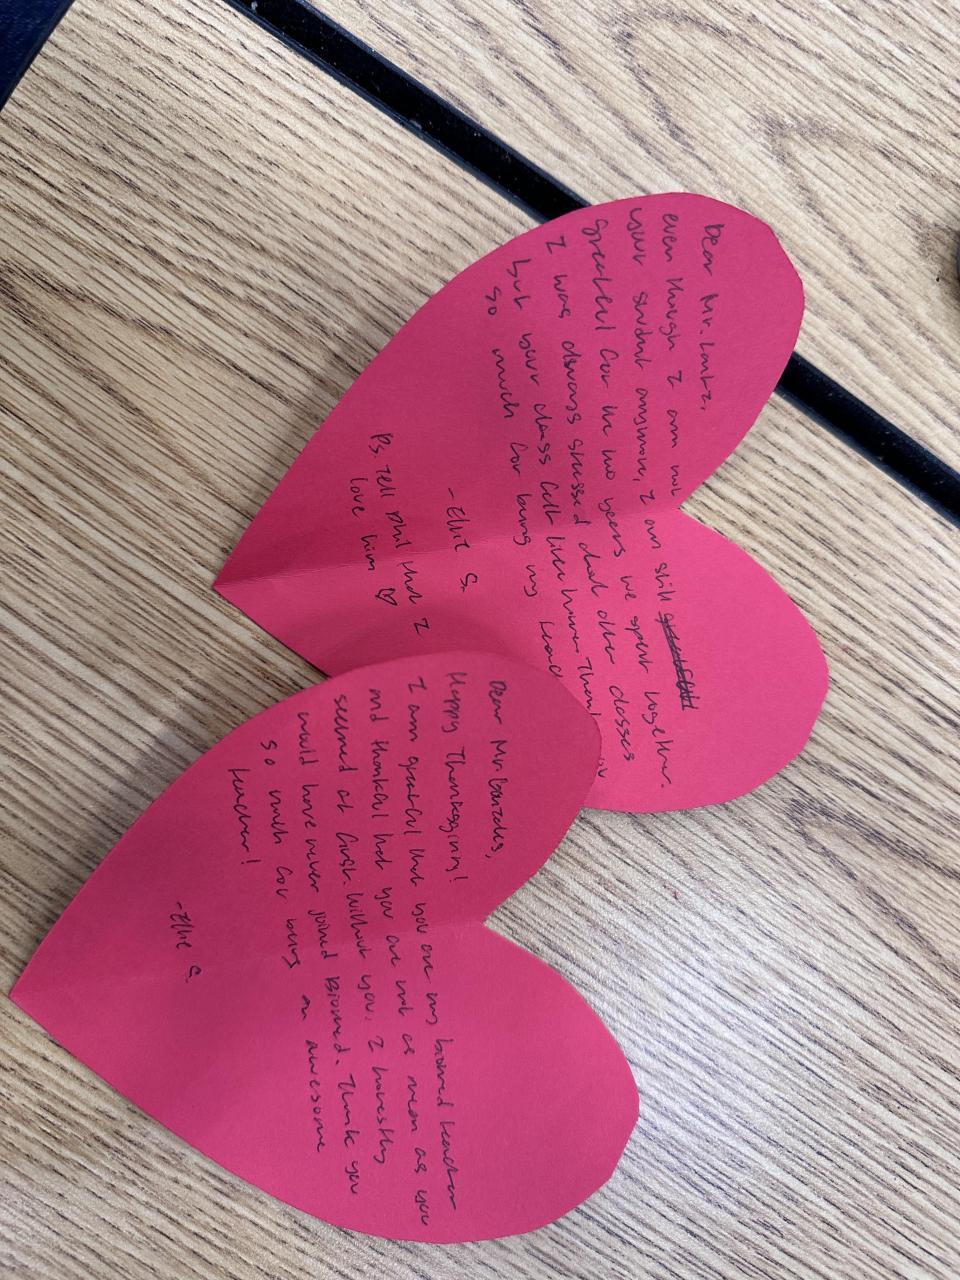 Dear Mr.
even though I am not
your student anymore, I am still
grateful for the two years we spent together.
I was always stressed about other classes
but your class felt like home. Thank you
so much for being my
-Ellie S.
Ps. Tell Phil that I
love him ♡
Dear Mr.
Happy Thanksgiving!
I am grateful that you are my biomed teacher
and thankful that you are not as mean as you
seemed at first. Without you, I honestly
would have never joined Biomed. Thank you
so much for being an awesome
teacher!
-Ellie S.